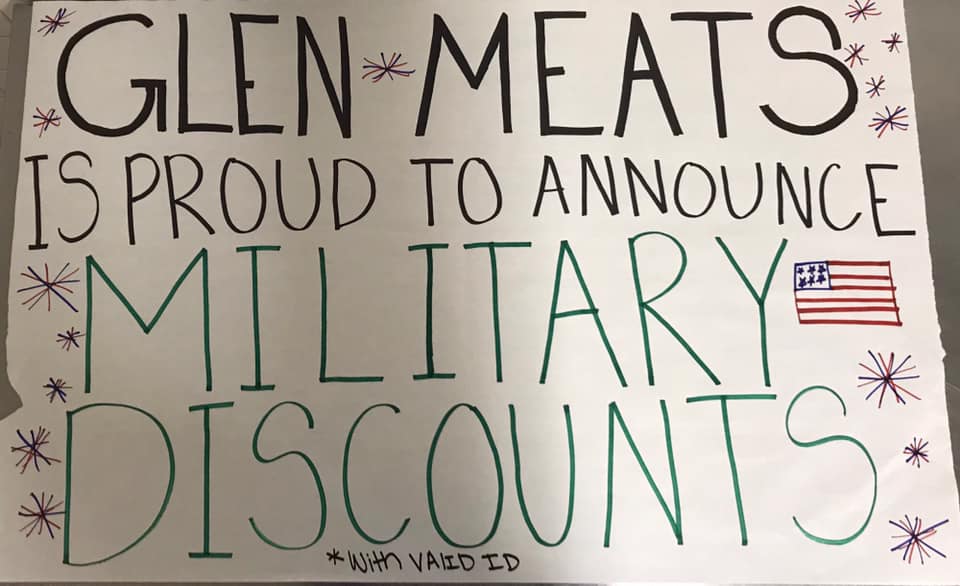 GLEN MEATS
IS PROUD TO ANNOUNCE
MILITARY
DISCOUNTS
*With VALID ID